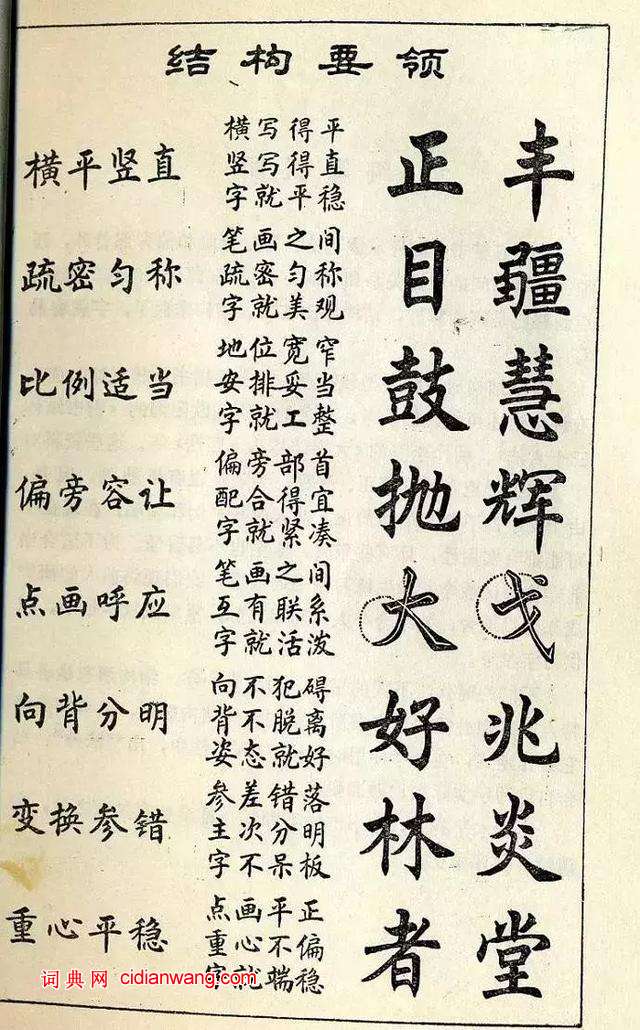 结构要领
横平竖直
横写得平
竖写得直
字就平稳
正 丰
疏密匀称
笔画之间
疏密匀称
字就美观
目 疆
比例适当
地位宽窄
安排妥当
字就工整
鼓 慧
偏旁容让
偏旁部首
配合得宜
字就紧凑
抛 辉
点画呼应
笔画之间
互有联系
字就活泼
大 戈
向背分明
向不犯碍
背不脱离
姿态就好
好 兆
变换参错
参差错落
主次分明
字不呆板
林 炎
重心平稳
点画平正
重心不偏
字就端稳
者 堂
词典网 cidianwang.com